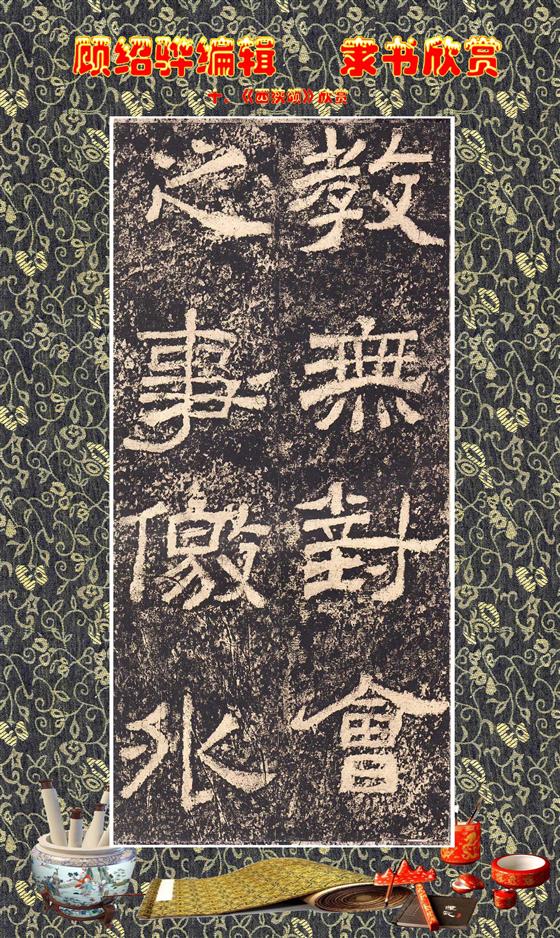 顾绍骅编辑 隶书欣赏
十、《西狭颂》欣赏
教無對會
之事儌外